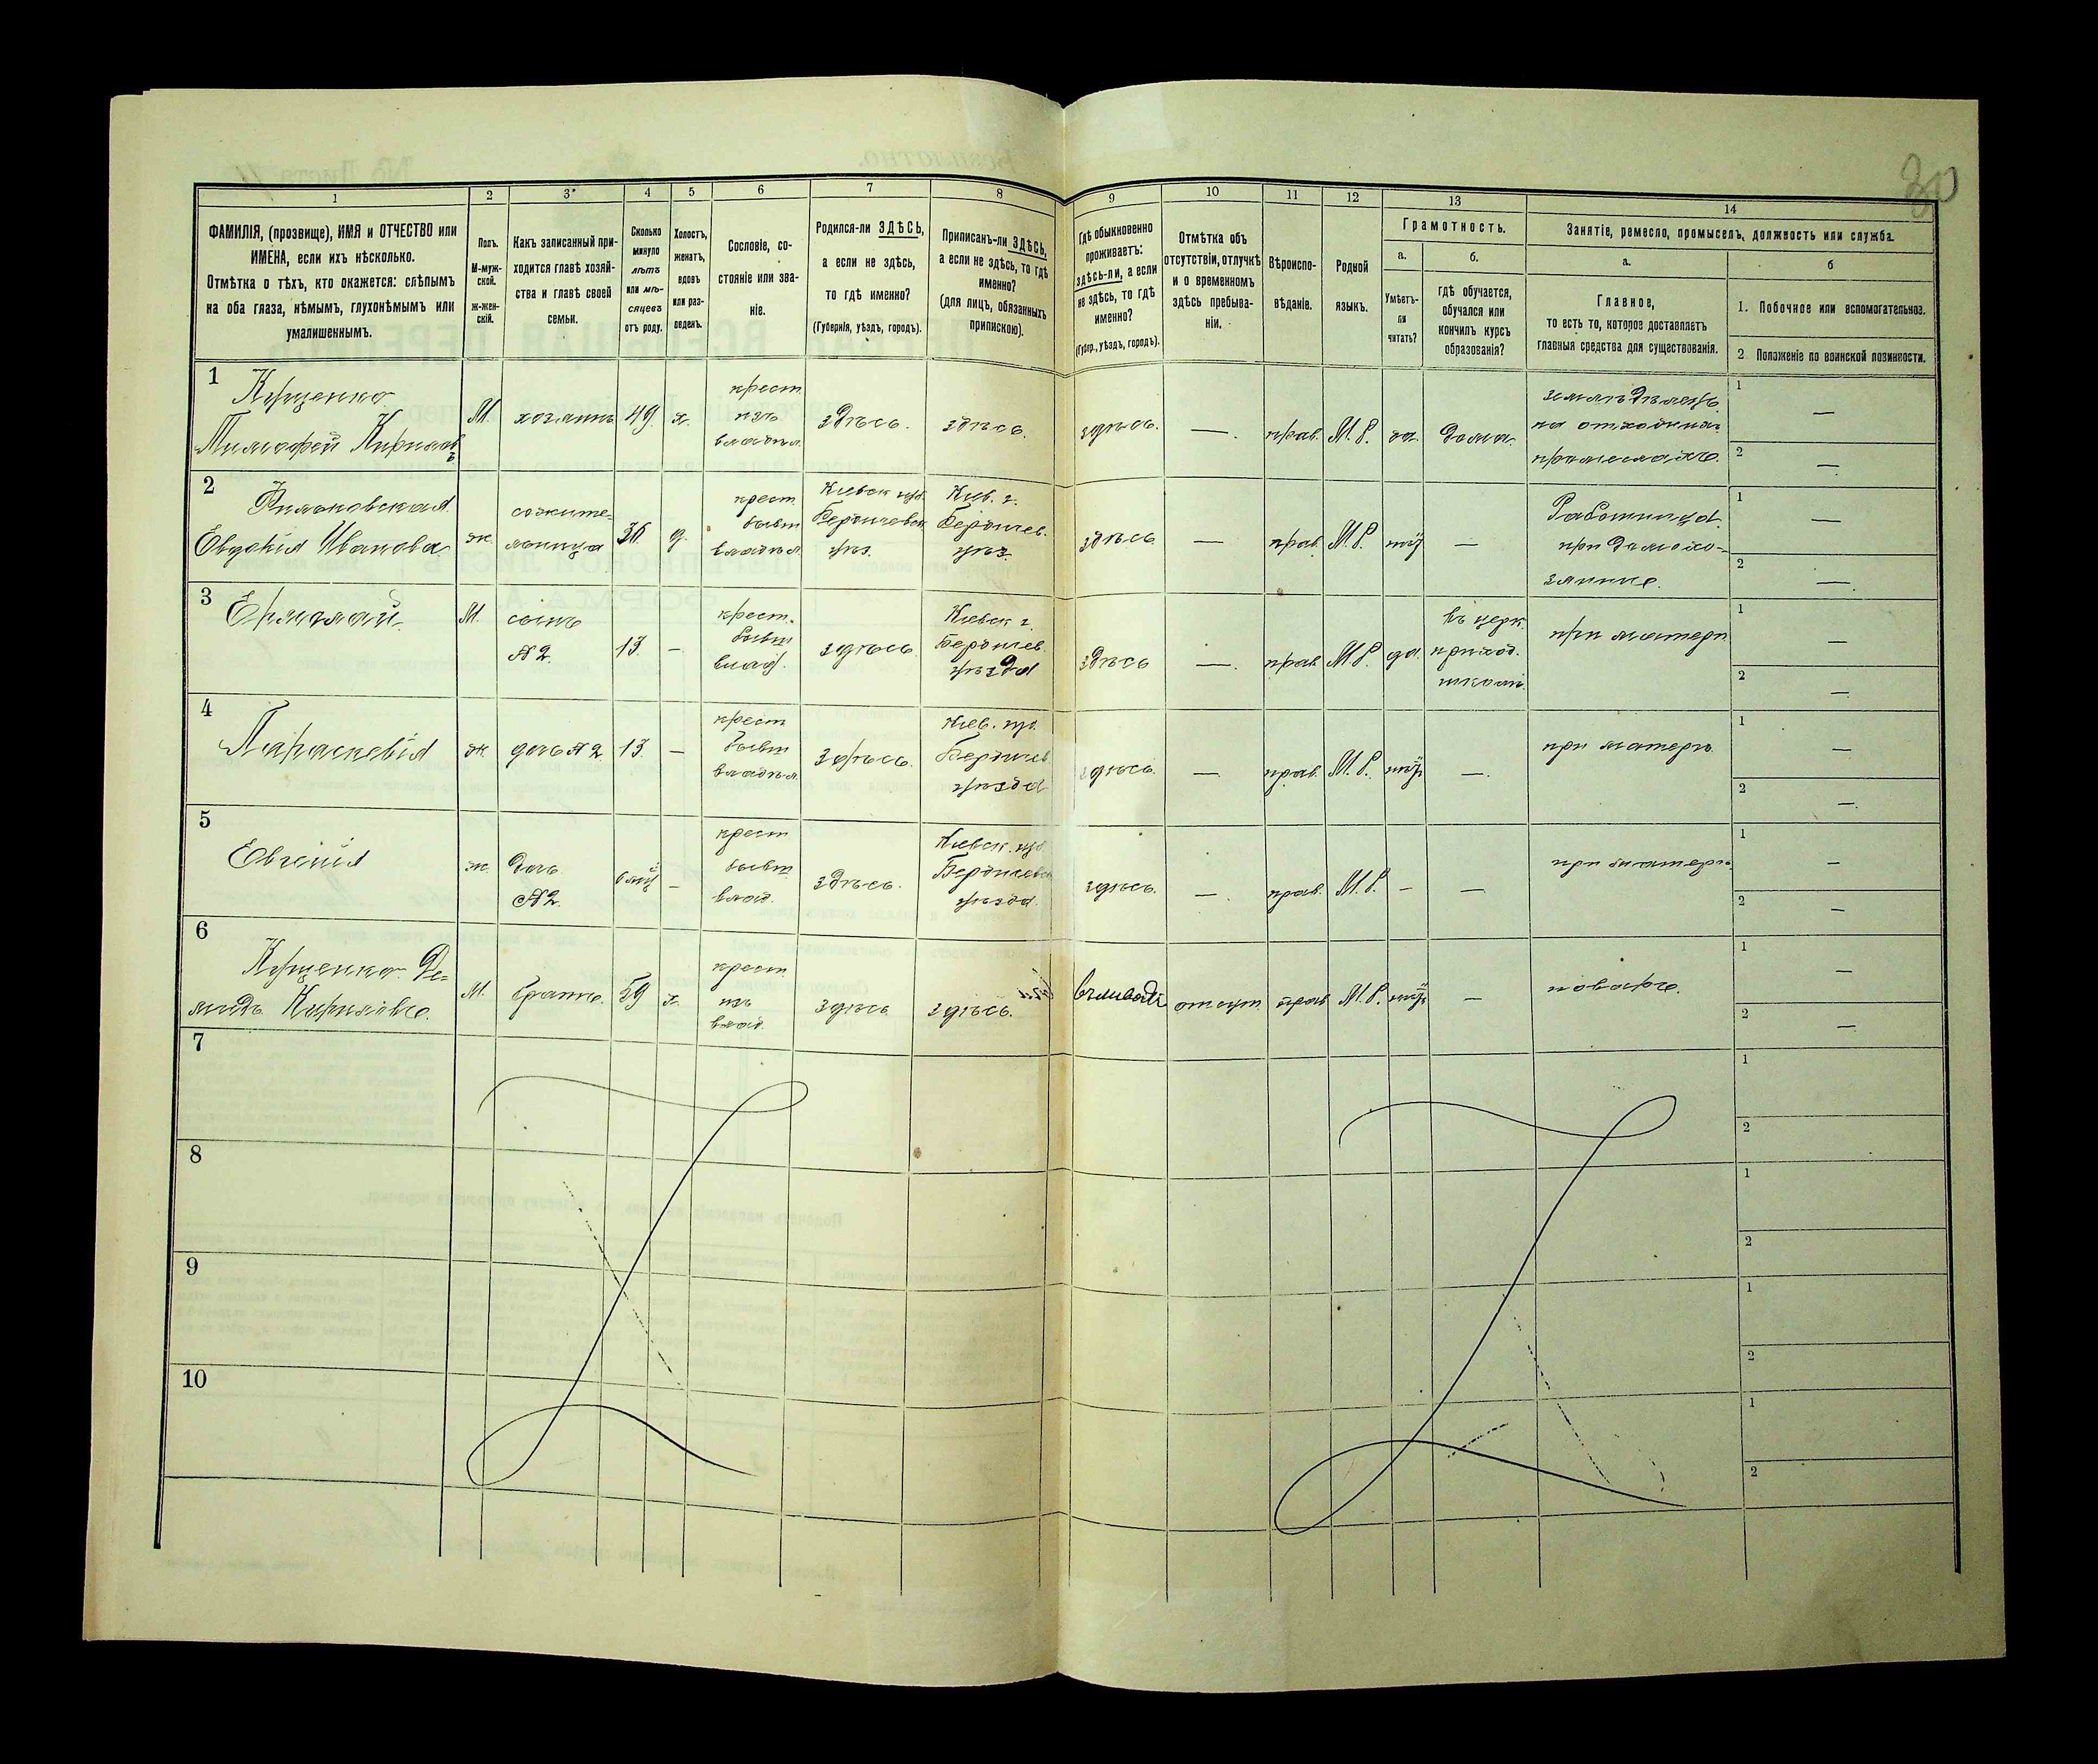 30
1
2
3
4
5
6
7
8
9
10
11
12
13
14
ФАМИЛІЯ, (прозвище), ИМЯ и ОТЧЕСТВО или
ИМЕНА, если ихъ нѣсколько.
Отмѣтка о тѣхъ, кто окажется: слѣпымъ
на оба глаза, нѣмымъ, глухонѣмымъ или
умалишеннымъ.
Полъ.
М-муж-
ской.
ж-жен-
скій.
Какъ записанный при-
ходится главѣ хозяй-
ства и главѣ своей
семьи.
Сколько
минуло
лѣтъ
или мѣ-
сяцевъ
отъ роду.
Холостъ,
женатъ,
вдовъ
или раз-
веденъ.
Сословіе, со-
стояніе или зва-
ніе.
Родился-ли ЗДѢСЬ,
а если не здѣсь,
то гдѣ именно?
(Губернія, уѣздъ, городъ).
Приписанъ-ли ЗДѢСЬ,
а если не здѣсь, то гдѣ
именно?
(для лицъ, обязанныхъ
припискою).
Гдѣ обыкновенно
проживаетъ:
здѣсь-ли, а если
не здѣсь, то гдѣ
именно?
(Губер., уѣздъ, городъ).
Отмѣтка объ
отсутствіи, отлучкѣ
и о временномъ
здѣсь пребыва-
ніи.
Вѣроиспо-
вѣданіе.
Родной
языкъ.
Грамотность.
а.
Умѣетъ-
ли
читать?
б.
гдѣ обучается,
обучался или
кончилъ курсъ
образованія?
Занятіе, ремесло, промыселъ, должность или служба.
а.
Главное,
то есть то, которое доставляетъ
главныя средства для существованія.
б
1. Побочное или вспомогательное.
2 Положеніе по воинской повинности.
1
Кущенко
Тимофей Кирилов
ъ
М.
хозяинъ
49
х.
крест.
изъ
владѣл.
здѣсь.
здѣсь.
здѣсь.
—.
прав.
М. Р.
да.
дома.
земледѣлецъ.
на отхожихъ
промыслахъ.
1 —
2 —
2
Евдокія Иванова
ж.
сожите-
льница
36
д.
крест.
бывш
владѣл.
Кіевск губ.
Бердичевск
уѣз.
Кіев. г.
Бердичев.
уѣз.
здѣсь
—
прав.
М. Р.
нѣт
—
Работница
при домохо-
зяине.
1 —
2 —.
3
Ермолай.
М.
сынъ
№ 2.
13
—
крест.
бывш
влад.
здѣсь.
Кіевск г.
Бердичев.
уѣзда
здѣсь
—.
прав
М. Р.
да.
въ церк.
приход.
школѣ.
при матери
1 —
2 —.
4
Параскевія
ж.
дочь № 2
13
—
крест
бывш
владѣл.
здѣсь.
Кіев. губ.
Бердичев
уѣзда
здѣсь.
—
прав.
М. Р.
нѣт
—.
при матери
1 —
2 —.
5
Евгенія
ж.
дочь
№ 2.
—
крест
бывш
влад.
здѣсь.
Кіевск. губ
Бердичевск
уѣзда.
здѣсь.
—.
прав.
М. Р.
—
—
при матери
1 —
2 —
6
Кущенко Де-
мидъ Кириловъ.
М.
братъ.
59
х.
крест
изъ
влад.
здѣсь
здѣсь.
отсут.
прав
М. Р.
нѣт
—
поваръ.
1 —
2 —
7
1
2
8
1
2
9
1
2
10
1
2